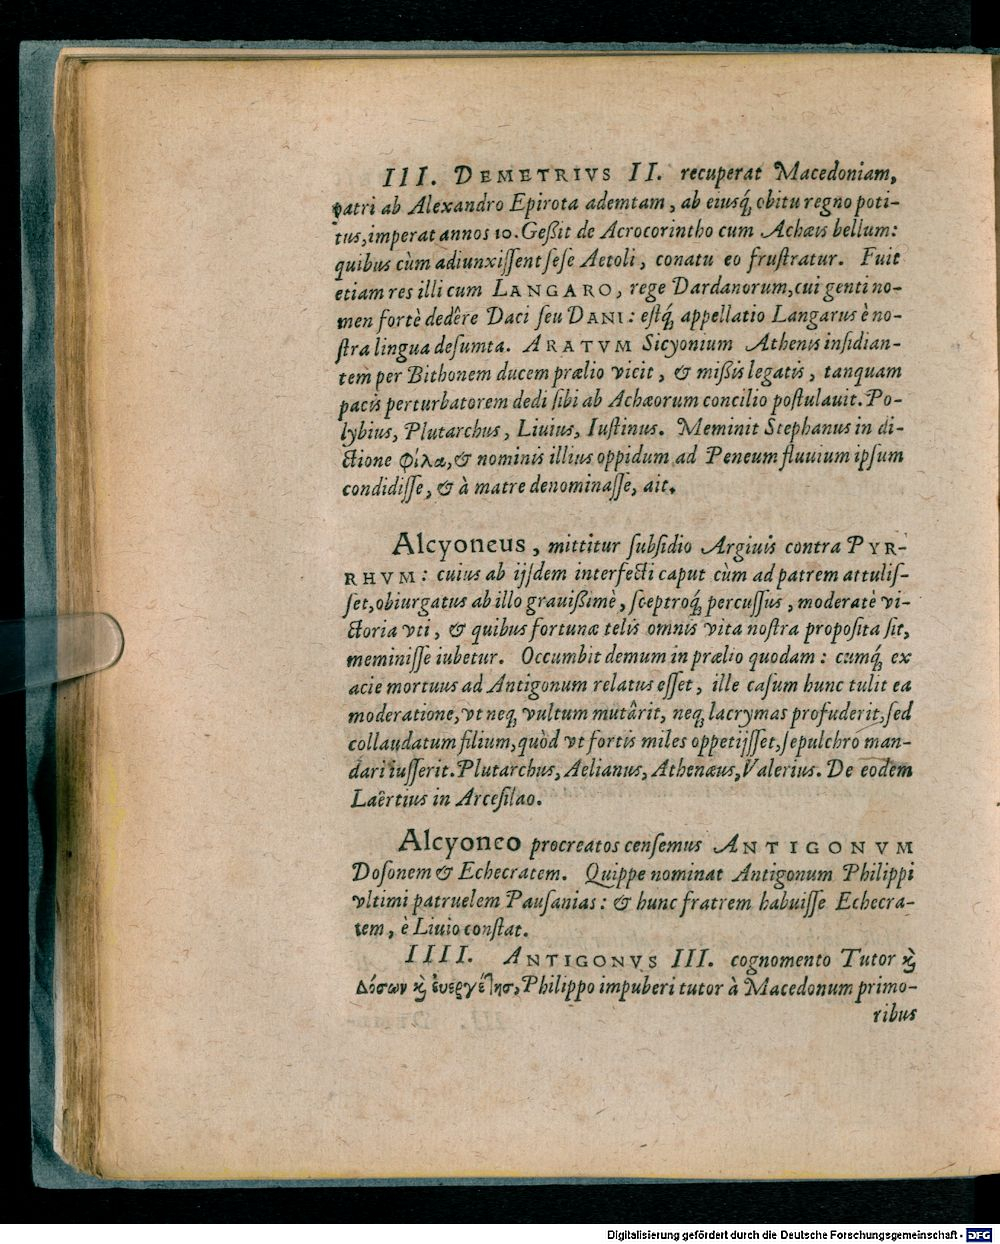 III. DEMETRIVS II. recuperat Macedoniam,
patri ab Alexandro Epirota ademtam, ab eiusq́; obitu regno poti-
tus, imperat annos 10. Geßit de Acrocorintho cum Achæis bellum:
quibus cùm adiunxiſſent ſeſe Aetoli, conatu eo fruſtratur. Fuit
etiam res illi cum LANGARO, rege Dardanorum, cui genti no-
men fortè dedêre Daci ſeu DANI: eſtq́; appellatio Langarus è no-
ſtra lingua deſumta. ARATVM Sicyonium Athenis inſidian-
tem per Bithonem ducem prælio vicit, & mißis legatis, tanquam
pacis perturbatorem dedi ſibi ab Achæorum concilio poſtulauit. Po-
lybius, Plutarchus, Liuius, Iuſtinus. Meminit Stephanus in di-
ctione φίλα, & nominis illius oppidum ad Peneum fluuium ipſum
condidiſſe, & à matre denominaſſe, ait.
Alcyoneus, mittitur ſubſidio Argiuis contra PYR-
RHVM: cuius ab ijſdem interfecti caput cùm ad patrem attuliſ-
ſet, obiurgatus ab illo grauißimè, ſceptroq́; percuſſus, moderatè vi-
ctoria vti, & quibus fortunæ telis omnis vita noſtra propoſita ſit,
meminiſſe iubetur. Occumbit demum in prælio quodam: cumq́; ex
acie mortuus ad Antigonum relatus eſſet, ille caſum hunc tulit ea
moderatione, vt neq; vultum mutârit, neq; lacrymas profuderit, ſed
collaudatum filium, quòd vt fortis miles oppetijſſet, ſepulchro man-
dari iuſſerit. Plutarchus, Aelianus, Athenæus, Valerius. De eodem
Laërtius in Arceſilao.
Alcyoneo procreatos cenſemus ANTIGONVM
Doſonem & Echecratem. Quippe nominat Antigonum Philippi
vltimi patruelem Pauſanias: & hunc fratrem habuiſſe Echecra-
tem, è Liuio conſtat.
IIII. ANTIGONVS III. cognomento Tutor ϗ̀
Δόσων ϗ̀ ἐυεργέτησ, Philippo impuberi tutor à Macedonum primo-
ribus
Digitalisierung gefördert durch die Deutsche Forschungsgemeinschaft - DFG